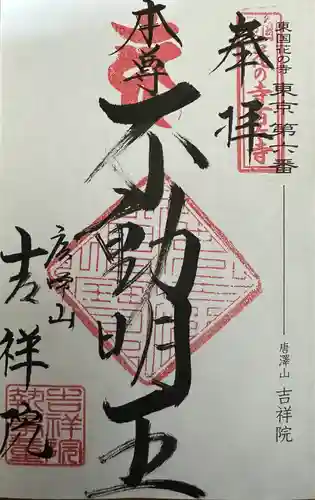 東国花の寺 東京 第六番
唐澤山 吉祥院
奉拝
本尊
不動明王
唐澤山
吉祥院